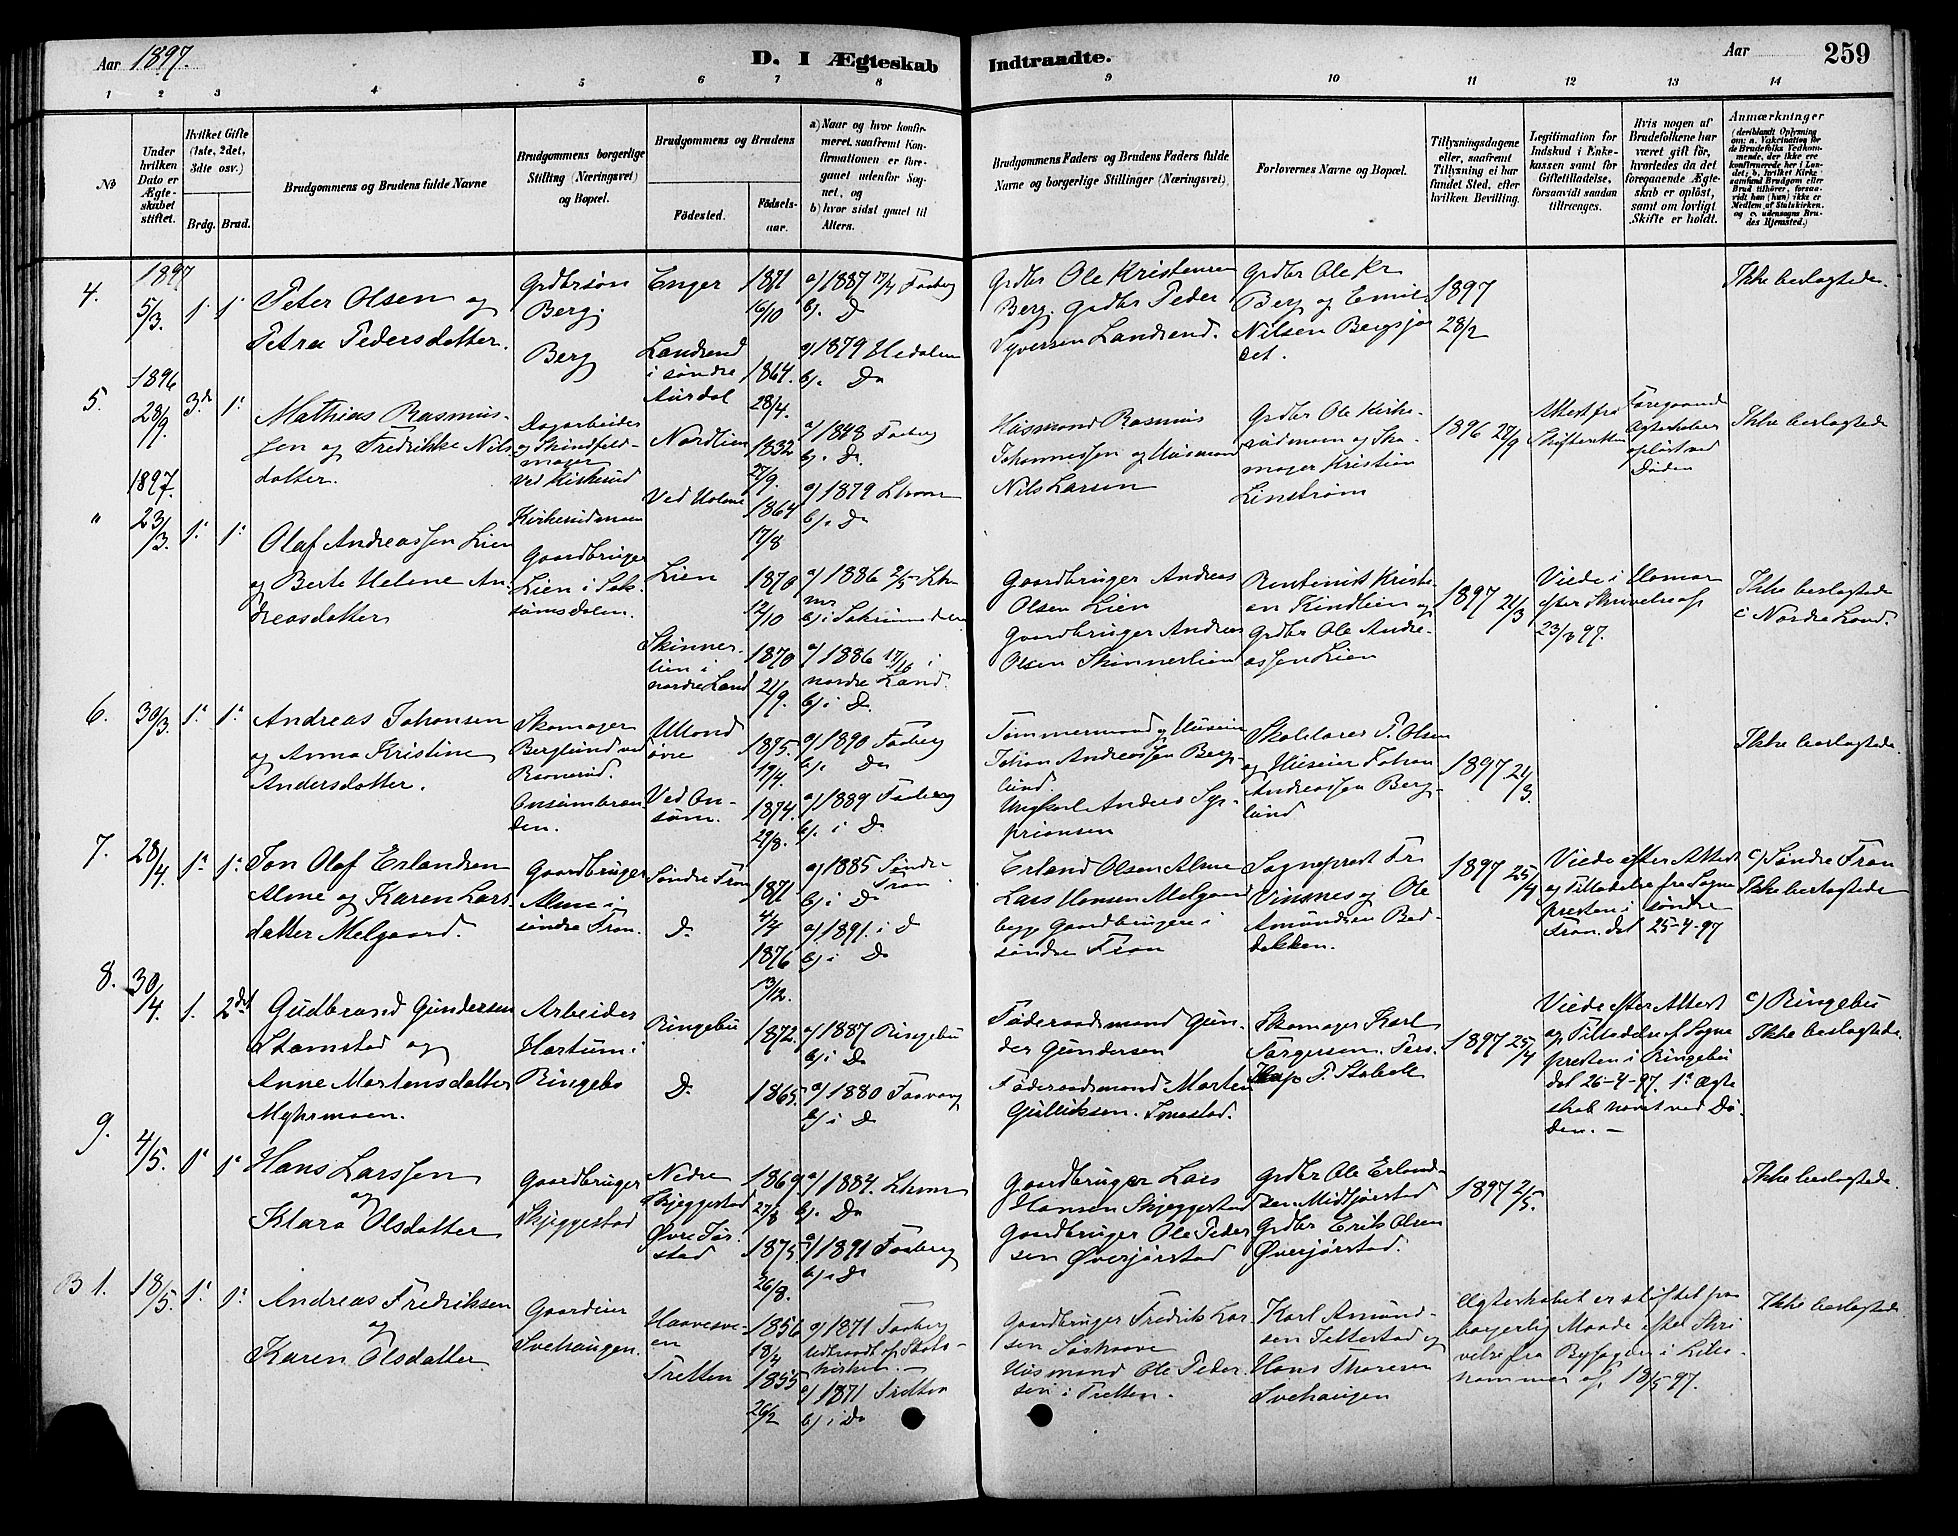 Aar 1897.
D. I Ægteskab
Indtraadte.
Aar
259
1 2 3 4 5 6 7 8 9 10 11 12 13 14
No
Under hvilken Dato er Ægteskabet stiftet.
Hvilket Gifte (1ste, 2det, 3die osv.)
Brdg. Brud.
Brudgommens og Brudens fulde Navne
Brudgommens borgerlige Stilling (Næringsvei) og Bopæl.
Brudgommens og Brudens
Fødested.
Fødsels-aar.
a) Naar og hvor konfirmeret, saafremt Konfirmationen er foregaaet udenfor Sognet, og
b) hvor sidst gaaet til Alters.
Brudgommens Faders og Brudens Faders fulde Navne og borgerlige Stillinger (Næringsvei).
Forlovernes Navne og Bopæl.
Tillysningsdagene eller, saafremt Tillysning ei har fundet Sted, efter hvilken Bevilling.
Legitimation for Indskud i Enkekassen samt for Giftetilladelse, forsaavidt saadan tiltrænges.
Hvis nogen af Brudefolkene har været gift før, hvorledes da det foregaaende Ægteskab er opløst, samt om lovligt Skifte er holdt.
Anmærkninger
(deriblandt Oplysning om: a. Vakcination for de Brudefolks Vedkommende, der ikke ere konfirmerede her i Landet; b. hvilket Kirkesamfund Brudgom eller Brud tilhører, forsaavidt han (hun) ikke er Medlem af Statskirken, og c. udensogns Brudes Hjemsted.)
4. 1897 5/3. 1. 1.
Peter Olsen og
Petra Pedersdatter.
Grdbrsøn
Berg.
Berg
Enger
Landsend
i søndre
Aurdal
1871
16/10
1864.
28/4.
a) 1887 17/4 Faaberg
b). D
a) 1879 Hedalen
b). Do
Grdbr Ole Kristensen
Berg. grdbr Peder
Syversen Landsend.
Grdbr Ole Kr
Berg og Emil
Nilsen Bergsjø
et.
1897
28/2
Ikke beslægtede.
5. 1896 28/9 3de 1.
Mathias Rasmus-
sen og Fredrikke Nils
datter.
Dagarbeider
og Skindfeld-
mager
Ved Kirkerud
Kirkerudmoen
Nordlien
Ved Holene
1832
27/9.
1864
17/8
a) 1848 Faaberg
b). Do.
a) 1879 Lhmr
b). Do
Husmand Rasmus
Johannessen og Husmand
Nils Larsen
Grdbr Ole Kirke-
rudmoen og Sko-
mager Kristian
Linstrøm
1896 27/9
Attest fra
Skifteretten
Foregaaende
Ægteskaber
opløst ved
Døden
Ikke beslægtede
" 1897. 23/3. 1. 1.
Olaf Andreassen Lien
og Berte Helene An-
dreasdatter
Gaardbruger
Lien i Sak-
sumsdalen.
Lien
Skinner-
lien i
nordre Land
1870
12/10
1870
21/9.
a) 1886 2/5 Lhm
mr
b) i Saksumdalen
a) 1886 17/10 i
nordre Land.
b) i D.
Gaardbruger Andreas
Olsen Lien
Gaardbruger Andreas
Olsen Skinnerlien
Rentenist Kristi-
an Kindlien og
Grdbr Ole Andre-
assen Lien
1897 21/3
Viede i Hamar
efter Skrivelse af
23/3 97.
Ikke beslægtede
c) Nordre Land.
6. 30/3. 1. 1.
Andreas Johansen
og Anna Kristine
Andersdatter.
Skomager
Berglund ved
Bonerud.
Onsumbraa
den.
Ulland
øvre
Ved On-
sum.
1875.
19/4.
1874.
29/8.
a) 1890 Faaberg
b). Do
a) 1889 Faaberg
b). i D.
Tømmermand og Huseier
Johan Andreassen Berg-
lund.
Ungkarl Anders Sy-
priansen
Skolelærer P. Olsen
og Huseier Johan
Andreassen Berg-
lund
1897. 21/3.
Ikke beslægtede
7. 28/4. 1. 1.
Jon Olaf Erlandsen
Alme og Karen Lars-
datter Melgaard.
Gaardbruger
Alme i
søndre Fron.
Søndre Fron
D.
1871
4/4
1876
13/12.
a) 1885 Søndre
Fron
b) i D
a) 1891. i D
b) i D
Erland Olsen Alme
Lars Hansen Melgaard
begge Gaardbrugere i
søndre Fron
Sogneprest Fr
Vinsnes og Ole
Amundsen Bad-
stokken.
1897 25/4
Viede efter Attest
og Tilladelse fra Sogne
presten i søndre
Fron. dat 25-4-97
c) Søndre Fron
Ikke beslægtede
8. 30/4. 1. 2det
Gudbrand Gundersen
Stamstad og
Anne Mortensdatter
Myhrmoen.
Arbeider
Hartum i
Ringebo
Ringebu
D.
1872.
1865.
a) 1887 Ringebu
b) i D
a) 1880 Faavang
b) i D
Føderaadsmand Gun-
der Gundersen
Føderaadsmand Morten
Gulliksen.
Skomager Karl
Torgersen.
P. Stabell
1897 25/4
Viede efter Attest
og Tilladelse af Sogne
presten i Ringebu
dat 26-4-97. 1ste Ægte
skab hævet ved Dø-
den. —
c) Ringebu
Ikke beslægtede.
9. 4/5. 1. 1.
Hans Larssen
og
Klara Olsdatter
Gaardbruger
Skjeggestad
Nedre
Skjeggestad
Øvre Jør-
stad
1869
27/8
1875.
26/8.
a) 1884. Lhmr
b). Do
a) 1891 Faaberg
b) i Do
Gaardbruger Lars
Hansen Skjeggestad
Gaardbruger Ole Peder
sen Øverjørstad
Grdbr Ole Erland-
sen Midtjørstad
Grdbr Erik Olsen
Øverjørstad.
1897 2/5.
Ikke beslægtede.
B 1. 18/5. 1. 1.
Andreas Fredriksen
og
Karen Olsdatter
Gaardeier
Svehaugen.
Haavesve-
en
Tretten
1856
18/4
1855
26/2
a) 1871 Faaberg
Udtraadt af Stats-
kirken. —
a) 1871 Tretten
b) i Do
Gaardbruger Fredrik Lar
sen
Husmand Ole Peder
sen i Tretten.
Karl Amund-
sen Jettestad og
Hans Thoresen
Svehaugen
Ægteskabet er stiftet paa
borgerlig Maade efter Skri
velse fra Byfogden i Lille-
hammer af 18/5 97.
Ikke beslægtede